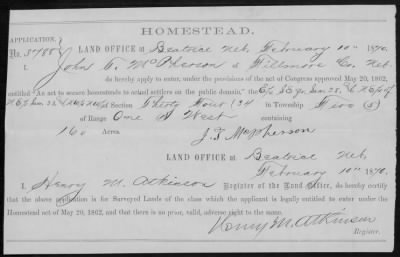 HOMESTEAD.
APPLICATION.
No. 3788
LAND OFFICE at Beatrice Neb, February 10th 1870.
I, John T. McPherson of Fillmore Co. Neb
do hereby apply to enter, under the provisions of the act of Congress approved May 20, 1862,
entitled "An act to secure homesteads to actual settlers on the public domain," the
Section Thirty Four (34 in Township Five (5)
of Range One West containing
160 Acres.
J. T. McPherson
LAND OFFICE at Beatrice Neb,
February 10th 1870.
I, Henry M. Atkinson Register of the Land Office, do hereby certify
that the above application is for Surveyed Lands of the class which the applicant is legally entitled to enter under the
Homestead act of May 20, 1862, and that there is no prior, valid, adverse right to the same.
Henry M. Atkinson
Register.